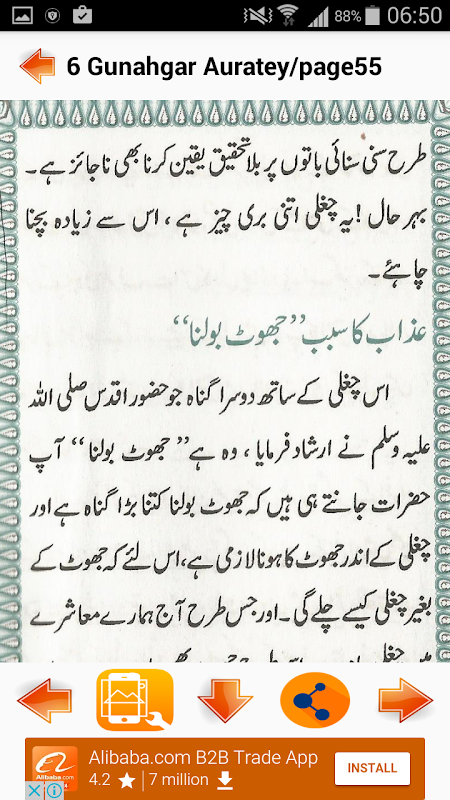 88% 06:50
6 Gunahgar Auratey/page55
طرح سنی سنائی باتوں پر بلا تحقیق یقین کرنا بھی ناجائز ہے۔
بہر حال! یہ چغلی اتنی بری چیز ہے، اس سے زیادہ بچنا
چاہئے۔
عذاب کا سبب ”جھوٹ بولنا“
اس چغلی کے ساتھ دوسرا گناہ جو حضور اقدس صلی اللہ
علیہ وسلم نے ارشاد فرمایا، وہ ہے ”جھوٹ بولنا“ آپ
حضرات جانتے ہی ہیں کہ جھوٹ بولنا کتنا بڑا گناہ ہے اور
چغلی کے اندر جھوٹ کا ہونا لازمی ہے، اس لئے کہ جھوٹ کے
بغیر چغلی کیسے چلے گی۔ اور جس طرح آج ہمارے معاشرے
Alibaba.com B2B Trade App
4.2 7 million
INSTALL
Alibaba.com